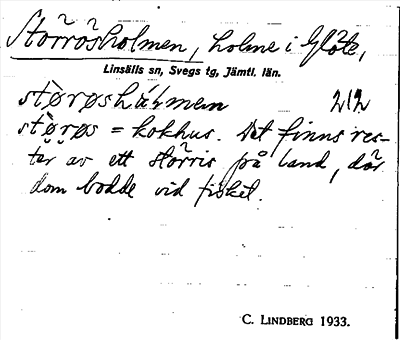 Störrösholmen, holme i Glöte,
Linsälls sn, Svegs tg, Jämtl. län.
2 1 2
störøs = kokhus. Det finns res-
ter av ett störris på land, där
dom bodde vid fisket.
C. LINDBERG 1933.